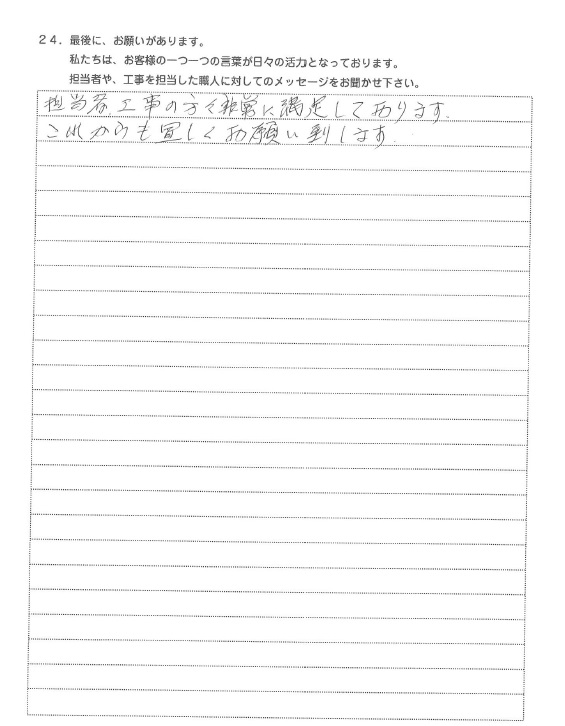 ２４．最後に、お願いがあります。
私たちは、お客様の一つ一つの言葉が日々の活力となっております。
担当者や、工事を担当した職人に対してのメッセージをお聞かせ下さい。
担当者、工事の方々非常に満足しております。
これからも宜しくお願い致します。